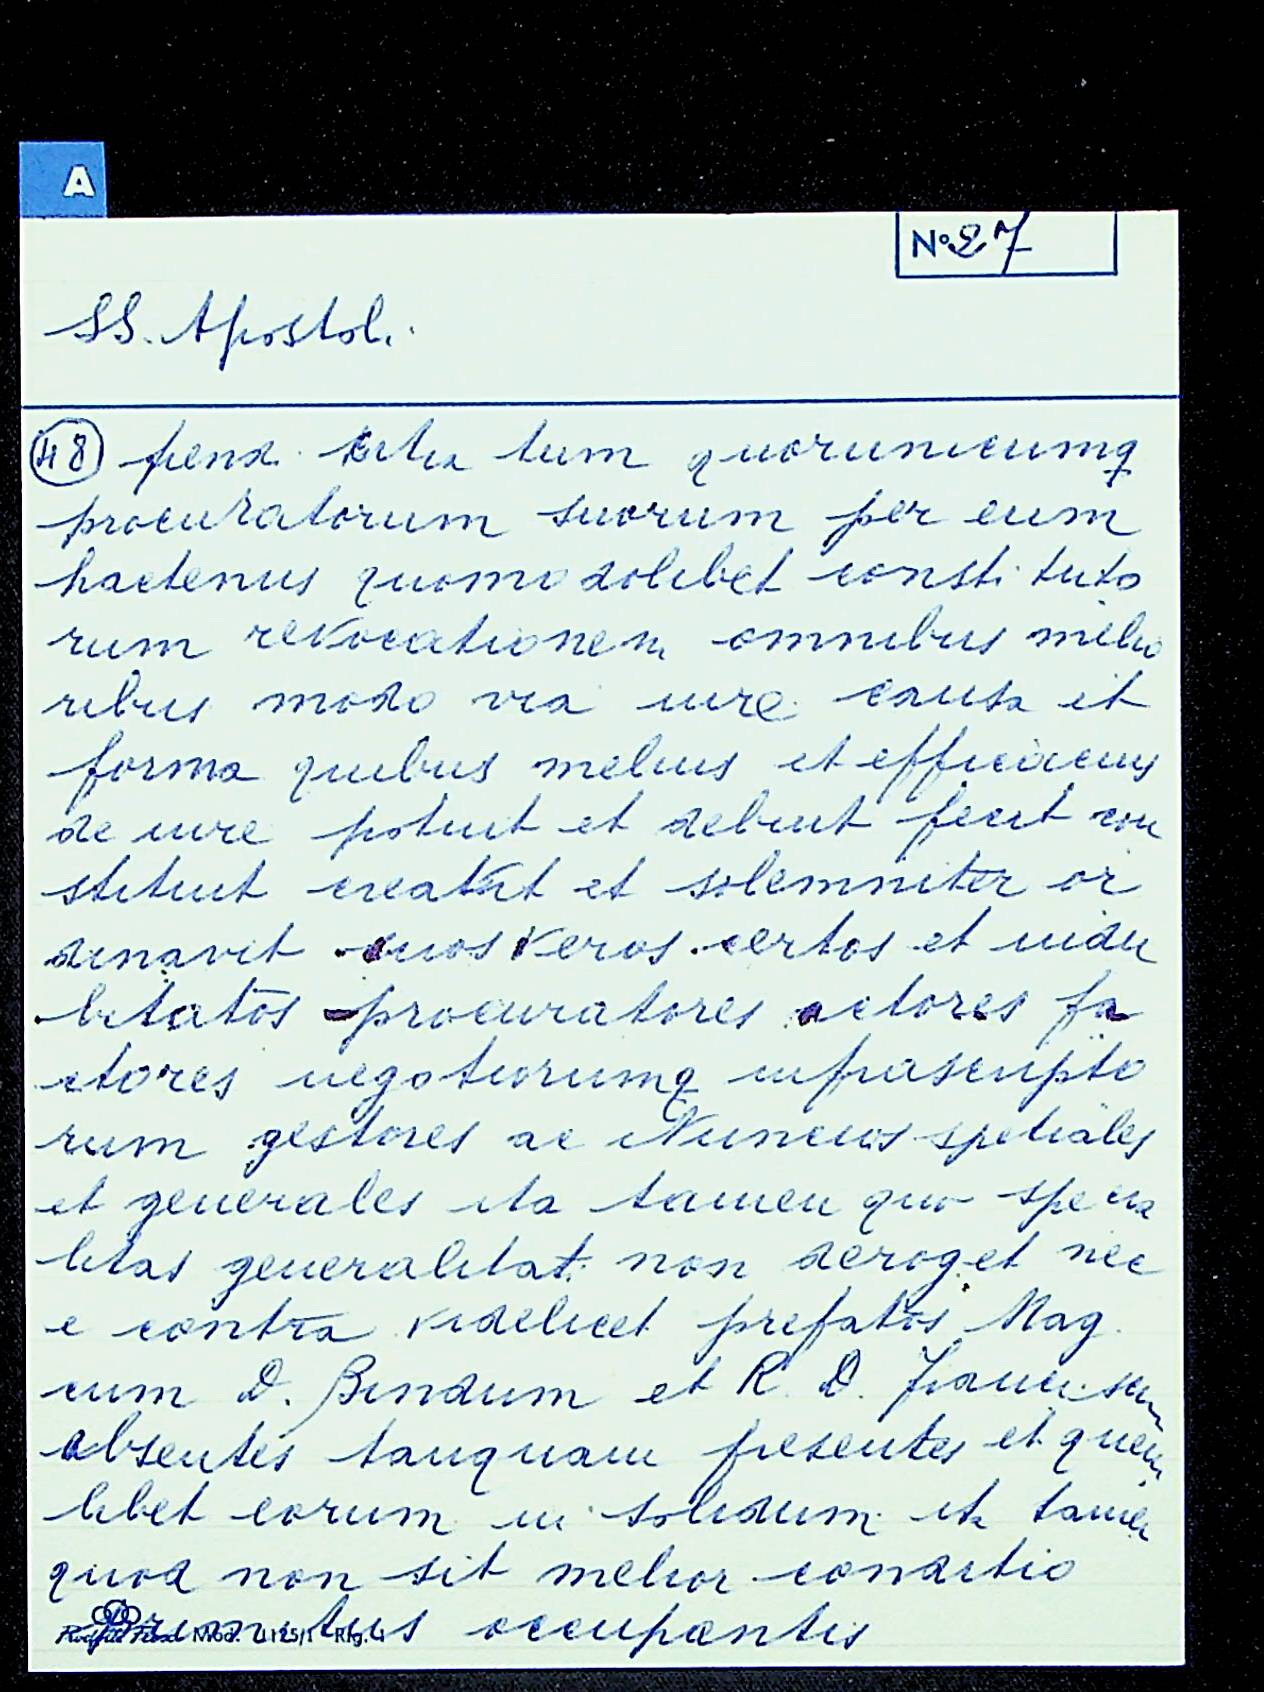 A
N° 27
SS. Apostol.
48 tum quorumcumq
procuratorum suorum per eum
hactenus quomodolibet constituto
rum revocationem omnibus melio
ribus modo via iure causa et
forma quibus melius et efficacius
de iure potuit et debuit fecit con
stituit creavit et solemniter or
dinavit suos veros certos et indu
bitatos procuratores actores fa
ctores negotiorumq infrascripto
rum gestores ac Nuncios spetiales
et generales ita tamen quo specia
litas generalitat. non deroget nec
e contra videlicet prefatos Mag.
cum D. Bindum et R. D. Franciscum
absentes tanquam presentes et quem
libet eorum in solidum ita tamen
quod non sit melior conditio
primitus occupantis
Mod.